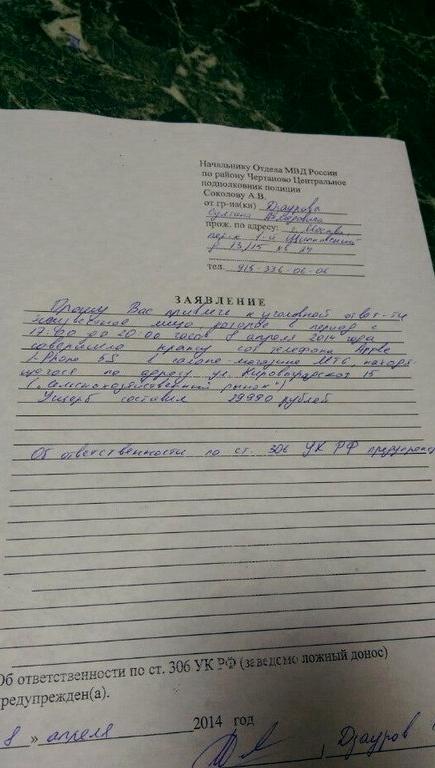 Начальнику Отдела МВД России
по району Чертаново Центральное
подполковник полиции
Соколову А.В.
от гр-на(ки) Дзаурова
Султана
прож. по адресу: г. Москва
пер-к 1-й Щиповский
д 13/15 №
тел. 915-336-06-06
ЗАЯВЛЕНИЕ
Прошу Вас привлечь к уголовной ответ-ти
неизвестное лицо которое в период с
до 20 00 часов 8 апреля 2014 года
совершило кражу сот.телефона Apple
i-Phone 5S в салоне-магазине МТС, находя
щегося по адресу ул. Кировоградская 15
("сельскохозяйственный рынок")
Ущерб составил 29990 рублей
Об ответственности по ст. 306 УК РФ
Об ответственности по ст. 306 УК РФ (заведомо ложный донос)
предупрежден(а).
8 » апреля 2014 год
Дзауров